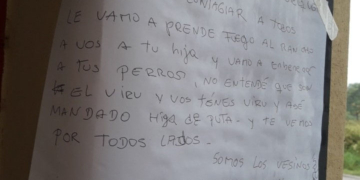 CONTAGIAR A TODOS
LE VAMO A PRENDE FUEGO AL RANCHO
A VOS A TU HIJA Y VAMO A
A TUS PERROS. NO ENTENDÉ QUE
EL VIRU Y VOS TENES VIRU Y
MANDADO HIJA DE PUTA - Y TE VEMOS
POR TODOS LADOS -
SOMOS LOS VESINOS